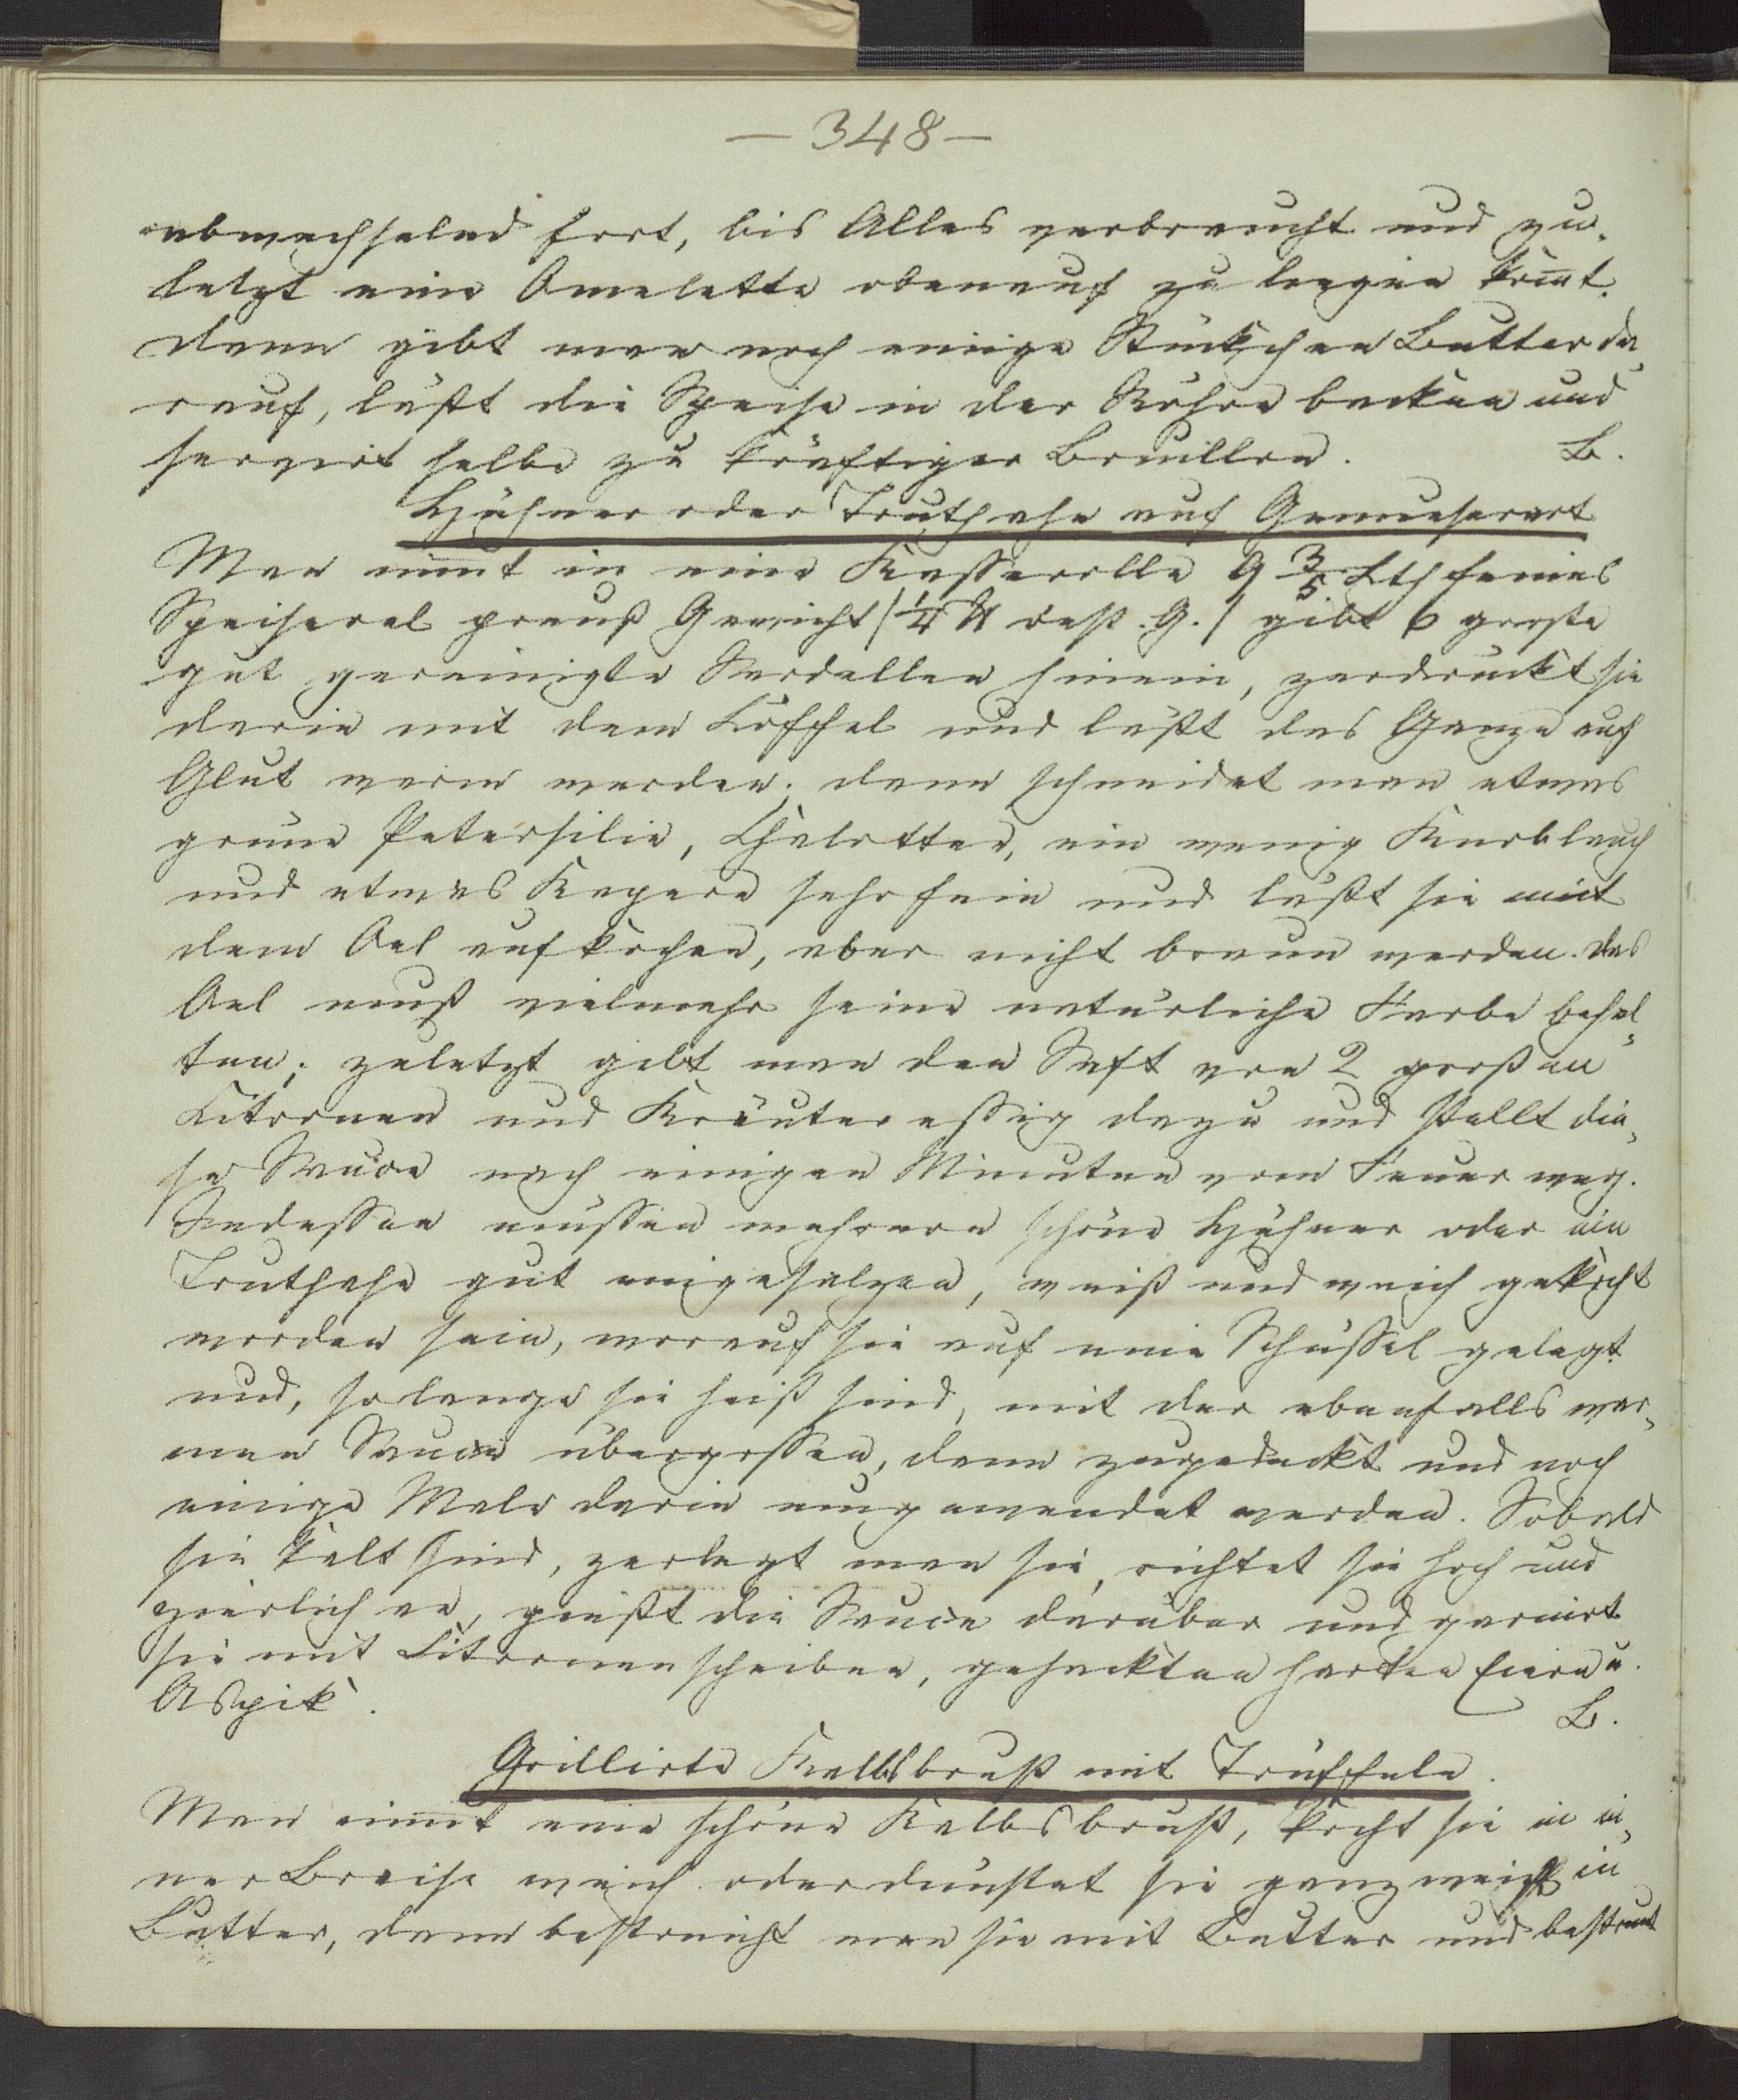 — 348 —
abwechselnd fort, bis Alles verbraucht und zu-
letzt eine Omelette obenauf zu liegen kom̄t.
dann gibt man noch einige Stückchen Butter da-
rauf, läßt die Speise in der Röhre backen und
servirt selbe zu kräftiger Bouillon. B.
Hühner oder Truthahn auf Genueserart
Man nim̄t in eine Kasserolle 9 3/5 Lth feines
Speiseoel preuß Gewicht /1/4 ℔ östr. G./ gibt 6 große
gut gereinigte Sardellen hinein, zerdrückt sie
darin mit dem Löffel und läßt das Ganze auf
Glut warm werden. dann schneidet man etwas
grüne Petersilie, Chalotten, ein wenig Knoblauch
und etwas Kapern sehr fein und läßt sie mit
dem Oel aufkochen, aber nicht braun werden. das
Oel muß vielmehr seine natürliche Farbe behal-
ten; zuletzt gibt man den Saft von 2 großen
Citronen und Kräuteressig dazu und stellt die-
se Sauce nach einigen Minuten vom Feuer weg.
Indessen müssen mehrere schöne Hühner oder ein
Truthahn gut eingesalzen, weiß und weich gekocht
worden sein, worauf sie auf eine Schüssel gelegt
und, so lange sie heiß sind, mit der ebenfalls war-
men Sauce übergossen, dann zugedeckt und noch
einige Male darin umgewendet werden. Sobald
sie kalt sind, zerlegt man sie, richtet sie hoch und
zierlich an, gießt die Sauce darüber und garnirt
sie mit Citronenscheiben, gehackten harten Eiern u.
Aspik. B.
Grillirte Kalbsbrust mit Trüffeln.
Man nim̄t eine schöne Kalbsbrust, kocht sie in ei-
ner Braise weich oder dünstet sie ganz weich in
Butter, dann bestreicht man sie mit Butter und bestreut